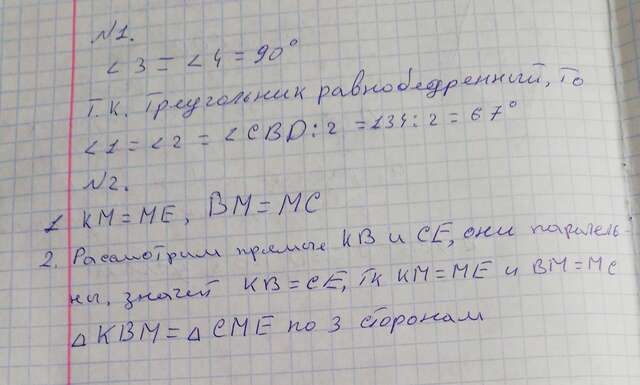 №1.
∠3 = ∠4 = 90°
Т.К. Треугольник равнобедренный, то
∠1 = ∠2 = ∠CBD : 2 = 134 : 2 = 67°
№2.
1 KM = ME, BM = MC
2. Расмотрим прямые KB и CE, они паралель-
ны, значит KB = CE, тк KM = ME и BM = MC
△KBM = △CME по 3 сторонам